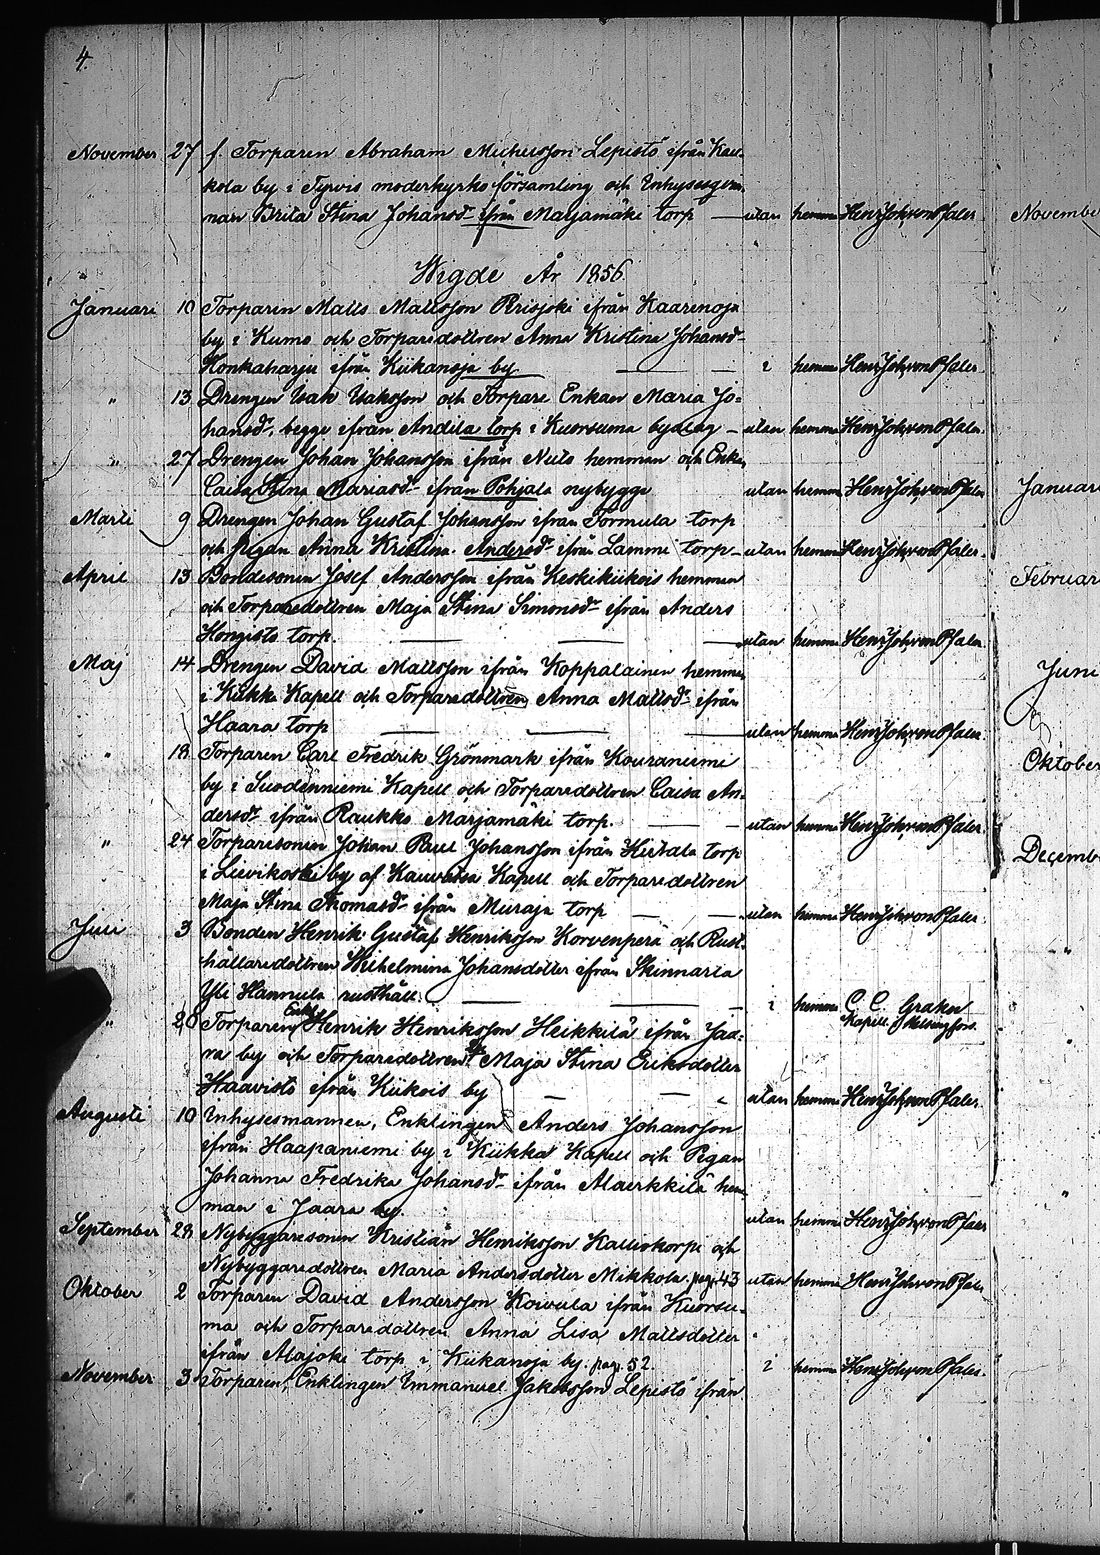 4.
November 27 f. Torparen Abraham Michelsson Lepistö ifrån Kau-
kola by i Tyrvis moderkyrko församling och Inhysesqvin-
nan Brita Stina Johansdr ifrån Marjamäki torp — utan hemma Henr Joh von Pfaler. November
Wigde År 1856
Januari 10 Torparen Matts Mattsson Prisjoki ifrån Kaarenoja
by i Kumo och Torparedottren Anna Kristina Johansdr
Konkaharju ifrån Kiikanoja by. — — i hemma Henr Joh von Pfaler.
" 13 Drengen Isak Isaksson och Torpare Enkan Maria Jo-
hansdr, begge ifrån Andila torp i Kuorsuma bydlag — utan hemma Henr Joh von Pfaler.
" 27 Drengen Johan Johansson ifrån Nuto hemman och Enkan
Caisa Stina Mariasdr ifrån Pohjala nybygge utan hemma Henr Joh von Pfaler Januari
Marti 9 Drengen Johan Gustaf Johansson ifrån Tormula torp
och Pigan Anna Kristina Andersdr ifrån Lammi torp — utan hemma Henr Joh von Pfaler.
April 13 Bondesonen Josef Andersson ifrån Keskikiikois hemman Februari
och Torparedottren Maja Stina Simonsdr ifrån Anders
Hongisto torp. — — — utan hemma Henr Joh von Pfaler.
Maj 14 Drengen David Mattsson ifrån Koppalainen hemman Juni
i Kiikka Kapell och Torparedottren Anna Mattsdr ifrån
Haara torp — — — utan hemma Henr Joh von Pfaler.
" 18 Torparen Carl Fredrik Grönmark ifrån Kouraniemi Oktober
by i Suodenniemi Kapell och Torparedottren Caisa An-
dersdr ifrån Raukko Marjamäki torp. — — utan hemma Henr Joh von Pfaler.
" 24 Torparesonen Johan Paul Johansson ifrån Hietala torp Decemb
i Liivikoski by af Kauvatsa Kapell och Torparedottren
Maja Stina Thomasdr ifrån Muraja torp — — utan hemma Henr Joh von Pfaler.
Juni 3 Bonden Henrik Gustaf Henriksson Korvenperä och Rust-
hållaredottren Wilhelmina Johansdotter ifrån Skinnarla "
Yli Hannula rusthåll. — — — i hemma C C Graken
Kapell. Helsingfors.
" 20 Torparen Enkl Henrik Henriksson Heikkilä ifrån Jaa-
ra by och Torparedottren Maja Stina Eriksdotter
Haavisto ifrån Kiikois by — — utan hemma Henr Joh von Pfaler.
Augusti 10 Inhysesmannen, Enklingen Anders Johansson
ifrån Haapaniemi by i Kiikka Kapell och Pigan
Johanna Fredrika Johansdr ifrån Alaerkkilä hem- "
man i Jaara by. utan hemma Henr Joh von Pfaler
September 28 Nybyggaresonen Kristian Henriksson Kalliokorpi och
Nybyggaredottren Maria Andersdotter Mikkola. pag. 43 utan hemma Henr Joh von Pfaler
Oktober 2 Torparen David Andersson Koivula ifrån Kuorsu-
ma och Torparedottren Anna Lisa Mattsdotter
ifrån Alajoki torp i Kiikanoja by. pag. 52. i hemma Henr Joh von Pfaler.
November 3 Torparen, Enklingen Immanuel Jakobsson Lepistö ifrån